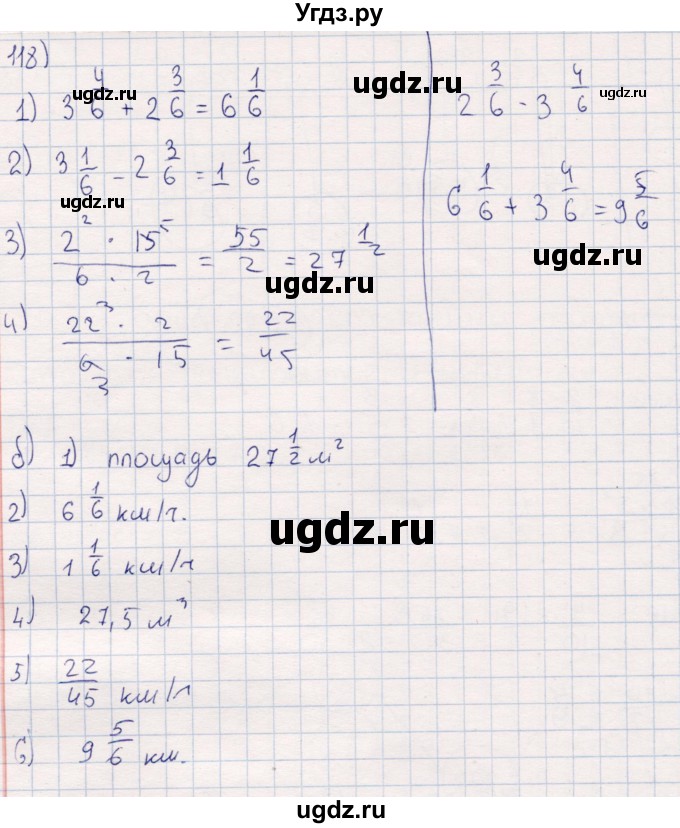 Угдз.ру
118)
1) 3 4/6 + 2 3/6 = 6 1/6
ugdz.ru
2 3/6 - 3 4/6
ugdz.ru
2) 3 1/6 - 2 3/6 = 1 1/6
ugdz.ru
6 1/6 + 3 4/6 = 9 5/6
ugdz.ru
3) 2² · 15⁵ / 6 · 2 = 55/2 = 27 1/2
ugdz.ru
4) 22³ · 2 / 6 3 · 15 = 22/45
ugdz.ru
б) 1) площадь 27 1/2 м²
2) 6 1/6 км/ч.
ugdz.ru
3) 1 1/6 км/ч
ugdz.ru
4) 27,5 м³
5) 22/45 км/ч
ugdz.ru
6) 9 5/6 км.
ugdz.ru
ugdz.ru